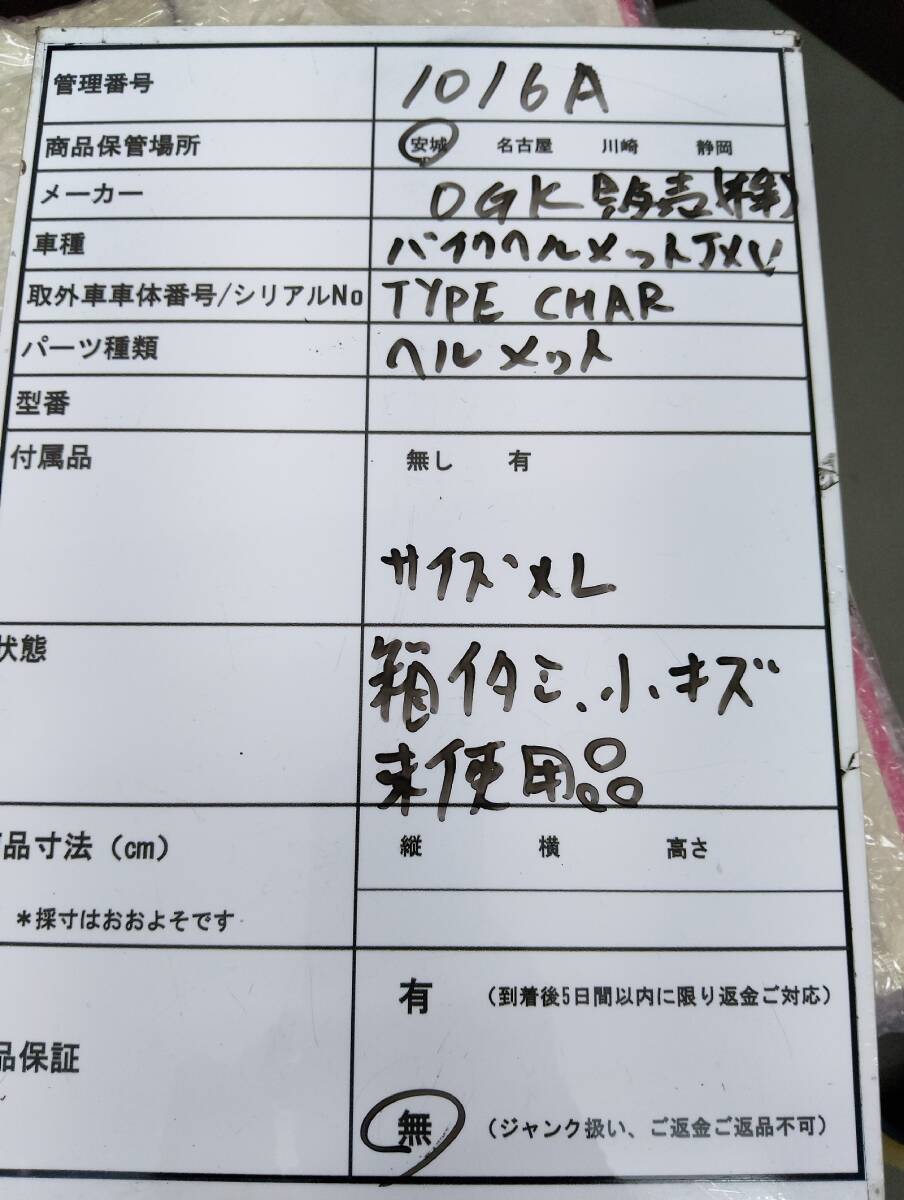 管理番号 1016A
商品保管場所 安城 名古屋 川崎 静岡
メーカー OGK販売(株)
車種 バイクヘルメット
取外車車体番号/シリアルNo TYPE CHAR
パーツ種類 ヘルメット
型番
付属品 無し 有
サイズXL
状態 箱イタミ、小キズ
未使用品
品寸法(cm) 縦 横 高さ
*採寸はおおよそです
有 (到着後5日間以内に限り返金ご対応)
品保証
無 (ジャンク扱い、ご返金ご返品不可)